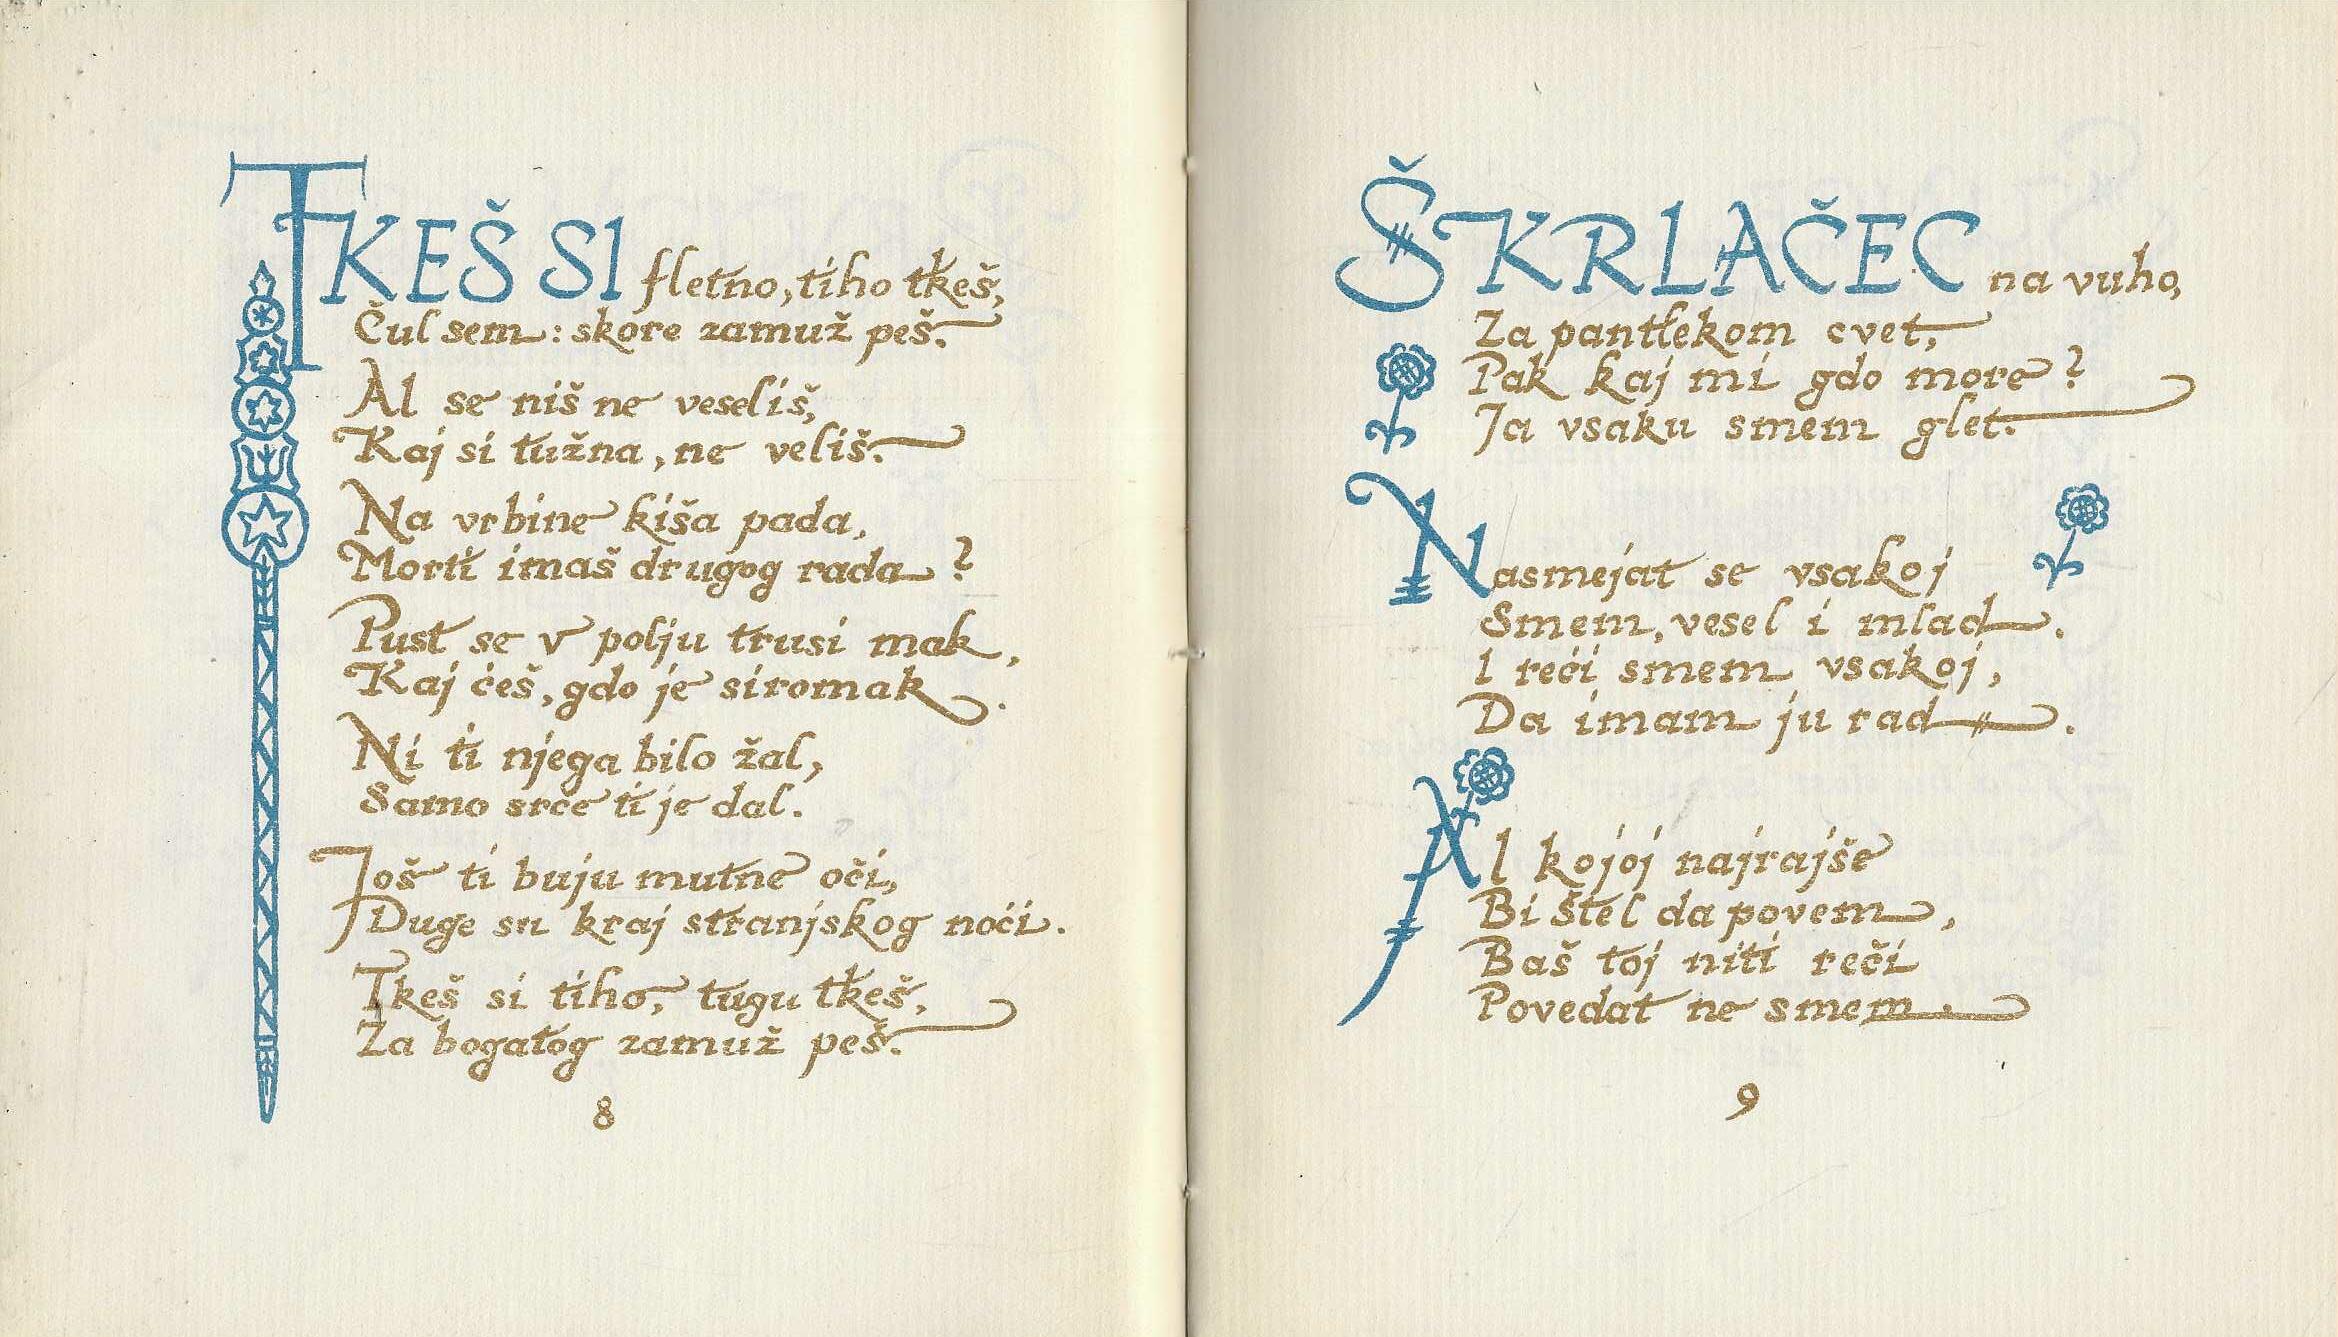 TKEŠ SI fletno, tiho tkeš,
Čul sem: skore zamuž peš.
Al se niš ne veseliš,
Kaj si tužna, ne veliš.
Na vrbine kiša pada,
Morti imaš drugog rada?
Pust se v polju trusi mak,
Kaj ćeš, gdo je siromak.
Ni ti njega bilo žal,
Samo srce ti je dal.
Još ti buju mutne oči,
Duge su kraj stranjskog noći.
Tkeš si tiho, tugu tkeš,
Za bogatog zamuž peš.
8
ŠKRLAČEC na vuho,
Za pantlekom cvet,
Pak kaj mi gdo more?
Ja vsaku smem glet.
Nasmejat se vsakoj
Smem, vesel i mlad.
I reći smem vsakoj,
Da imam ju rad.
Al kojoj najrajše
Bi štel da povem,
Baš toj niti reči
Povedat ne smem.
9